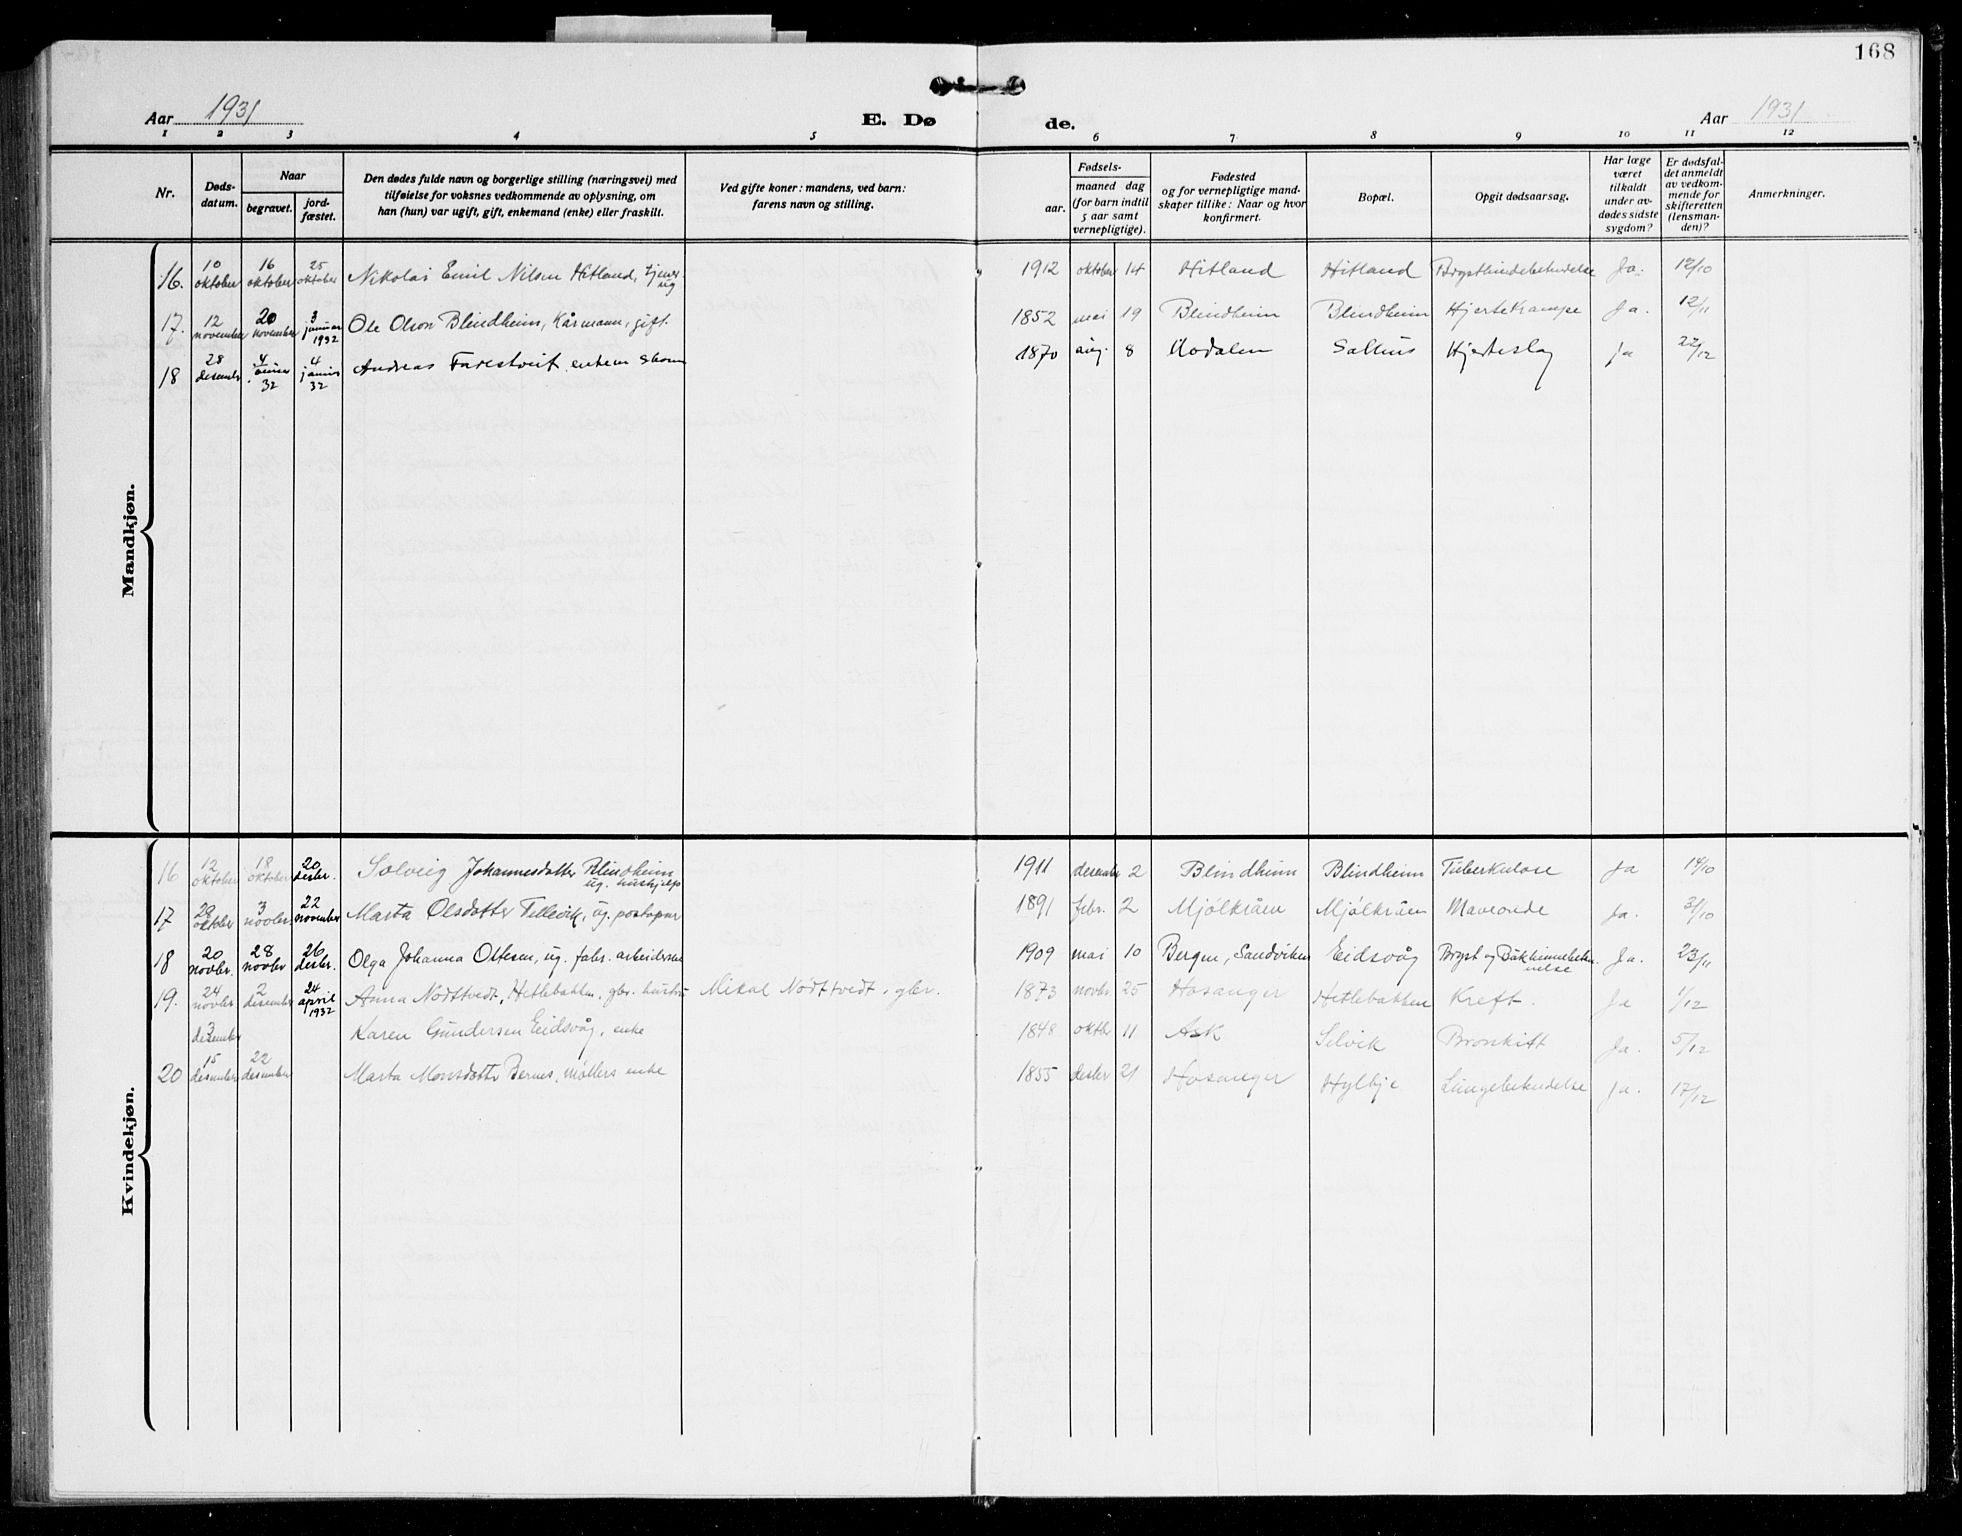 168
Aar 1931
E. Døde.
Aar 1931
1 2 3 4 5 6 7 8 9 10 11 12
Nr.
Døds-datum.
Naar
begravet.
jord-fæstet.
Den dødes fulde navn og borgerlige stilling (næringsvei) med
tilføielse for voksnes vedkommende av oplysning, om
han (hun) var ugift, gift, enkemand (enke) eller fraskilt.
Ved gifte koner: mandens, ved barn:
farens navn og stilling.
Fødsels-
aar.
maaned dag
(for barn indtil
5 aar samt
vernepligtige).
Fødested
og for vernepligtige mand-
skaper tillike: Naar og hvor
konfirmert.
Bopæl.
Opgit dødsaarsag.
Har læge
været
tilkaldt
under av-
dødes sidste
sygdom?
Er dødsfal-
det anmeldt
av vedkom-
mende for
skifteretten
(lensman-
den)?
Anmerkninger.
Mandkjøn.
16. 10 oktober 16 oktober 25 oktober Nikolai Emil Nilsen Hitland, tjener ug 1912 oktober 14 Hitland Hitland Brysthindebetendelse Ja. 12/10
17. 12 november 20 november 3 januar 1932 Ole Olson Blindheim, Kårmann, gift. 1852 mai 19 Blindheim Blindheim Hjertekrampe Ja. 12/11
18 28 desember 4 januar 32 4 januar 32 Andreas Farestveit enkem 1870 aug. 8 Modalen Salhus Hjerteslag Ja
Kvindekjøn.
16 12 oktober 18 oktober 20 desbr. Solveig Johannesdatter Blindheim ug. hushjelp 1911 desember 2 Blindheim Blindheim Tuberkulose Ja 14/10
17 oktober 3 novbr. 22 november Marta Olsdatter Tellevik, ug. 1891 febr. 2 Mjölkråen Mjölkråen Ja. 31/10
18 20 novbr. 28 novbr 26 desbr. Olga Johanna Olsen, ug. fabr. arbeiderske 1909 mai 10 Bergen, Sandviken Eidsvåg Ja. 23/11
19. 24 novbr. 2 desember 24 april 1932 Anna Nodtvedt, Hetlebakken, gbr. hustru Mikal Nodtvedt, gbr. 1873 novbr 25 Hosanger Hetlebakken Kreft. Ja 1/12
3 desember Karen Gundersen Eidsvåg, enke 1848 oktbr 11 Ask Selvik Bronkitt Ja. 5/12
20 15 desember 22 desember Marta Monsdatter Bernes, møllers enke 1855 desbr 21 Hosanger Hylbje Lungebetendelse Ja. 17/12